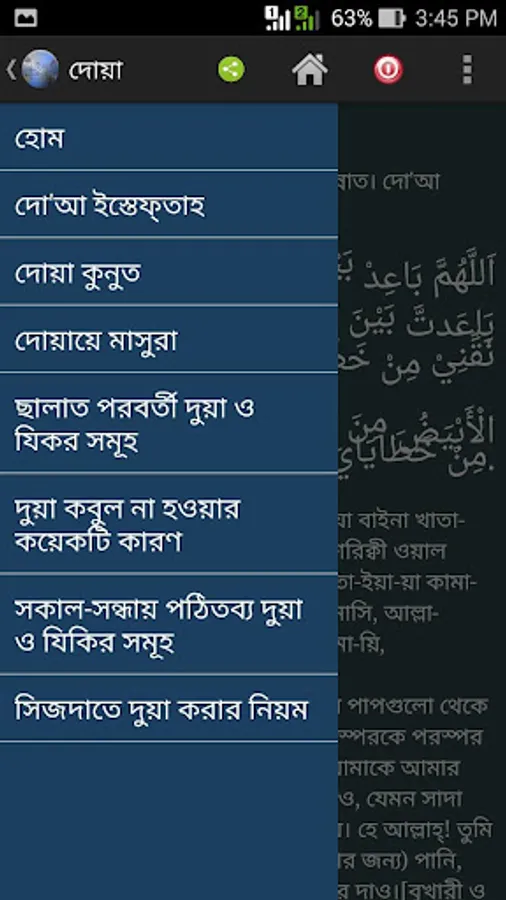 63% 3:45 PM
দোয়া
হোম
দো'আ ইস্তেফ্তাহ
দোয়া কুনুত
দোয়ায়ে মাসুরা
ছালাত পরবর্তী দুয়া ও
যিকর সমূহ
দুয়া কবুল না হওয়ার
কয়েকটি কারণ
সকাল-সন্ধায় পঠিতব্য দুয়া
ও যিকির সমূহ
সিজদাতে দুয়া করার নিয়ম
দো'আ
اَللَّهُمَّ بَاعِدْ
بَاعَدتَّ بَيْنَ
نَقِّنِيْ مِنْ
الْأَبْيَضُ مِنَ
مِنْ خَطَايَايَ.
বাইনা খাতা-
ওয়াল
তা-ইয়া-য়া কামা-
আল্লা-
মা-য়ি,
পাপগুলো থেকে
পরস্পর
আমার
ও, যেমন সাদা
। হে আল্লাহ্! তুমি
র জন্য) পানি,
র দাও।[বুখারী ও